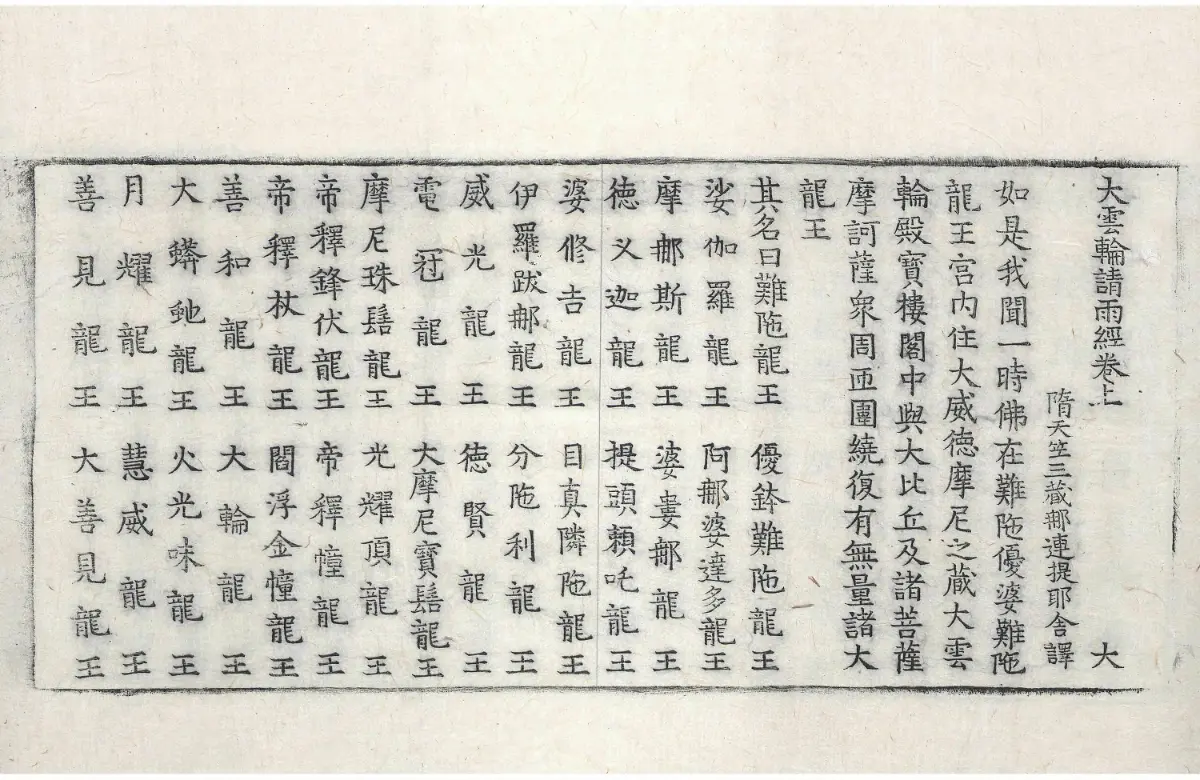 大雲輪請雨經卷上 大
隋天竺三藏那連提耶舍譯
如是我聞一時佛在難陁優婆難陁
龍王宮內住大威德摩尼之藏大雲
輪殿寶樓閣中與大比丘及諸菩薩
摩訶薩眾周匝圍繞復有無量諸大
龍王
其名曰難陁龍王 優鉢難陁龍王
娑伽羅龍王 阿那婆達多龍王
摩那斯龍王 婆婁那龍王
德义迦龍王 提頭賴吒龍王
婆修吉龍王 目真隣陁龍王
伊羅跋那龍王 分陁利龍王
威光龍王 德賢龍王
電冠龍王 大摩尼寶髻龍王
摩尼珠髻龍王 光耀頂龍王
帝釋鋒伏龍王 帝釋幢龍王
帝釋杖龍王 閻浮金幢龍王
善和龍王 大輪龍王
大蟒虵龍王 火光味龍王
月耀龍王 慧威龍王
善見龍王 大善見龍王